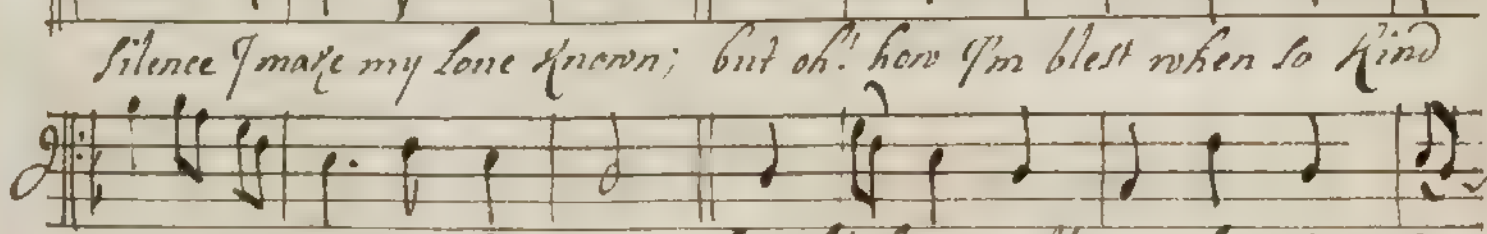 silence I make my Love known; but oh! how I'm blest when so kind